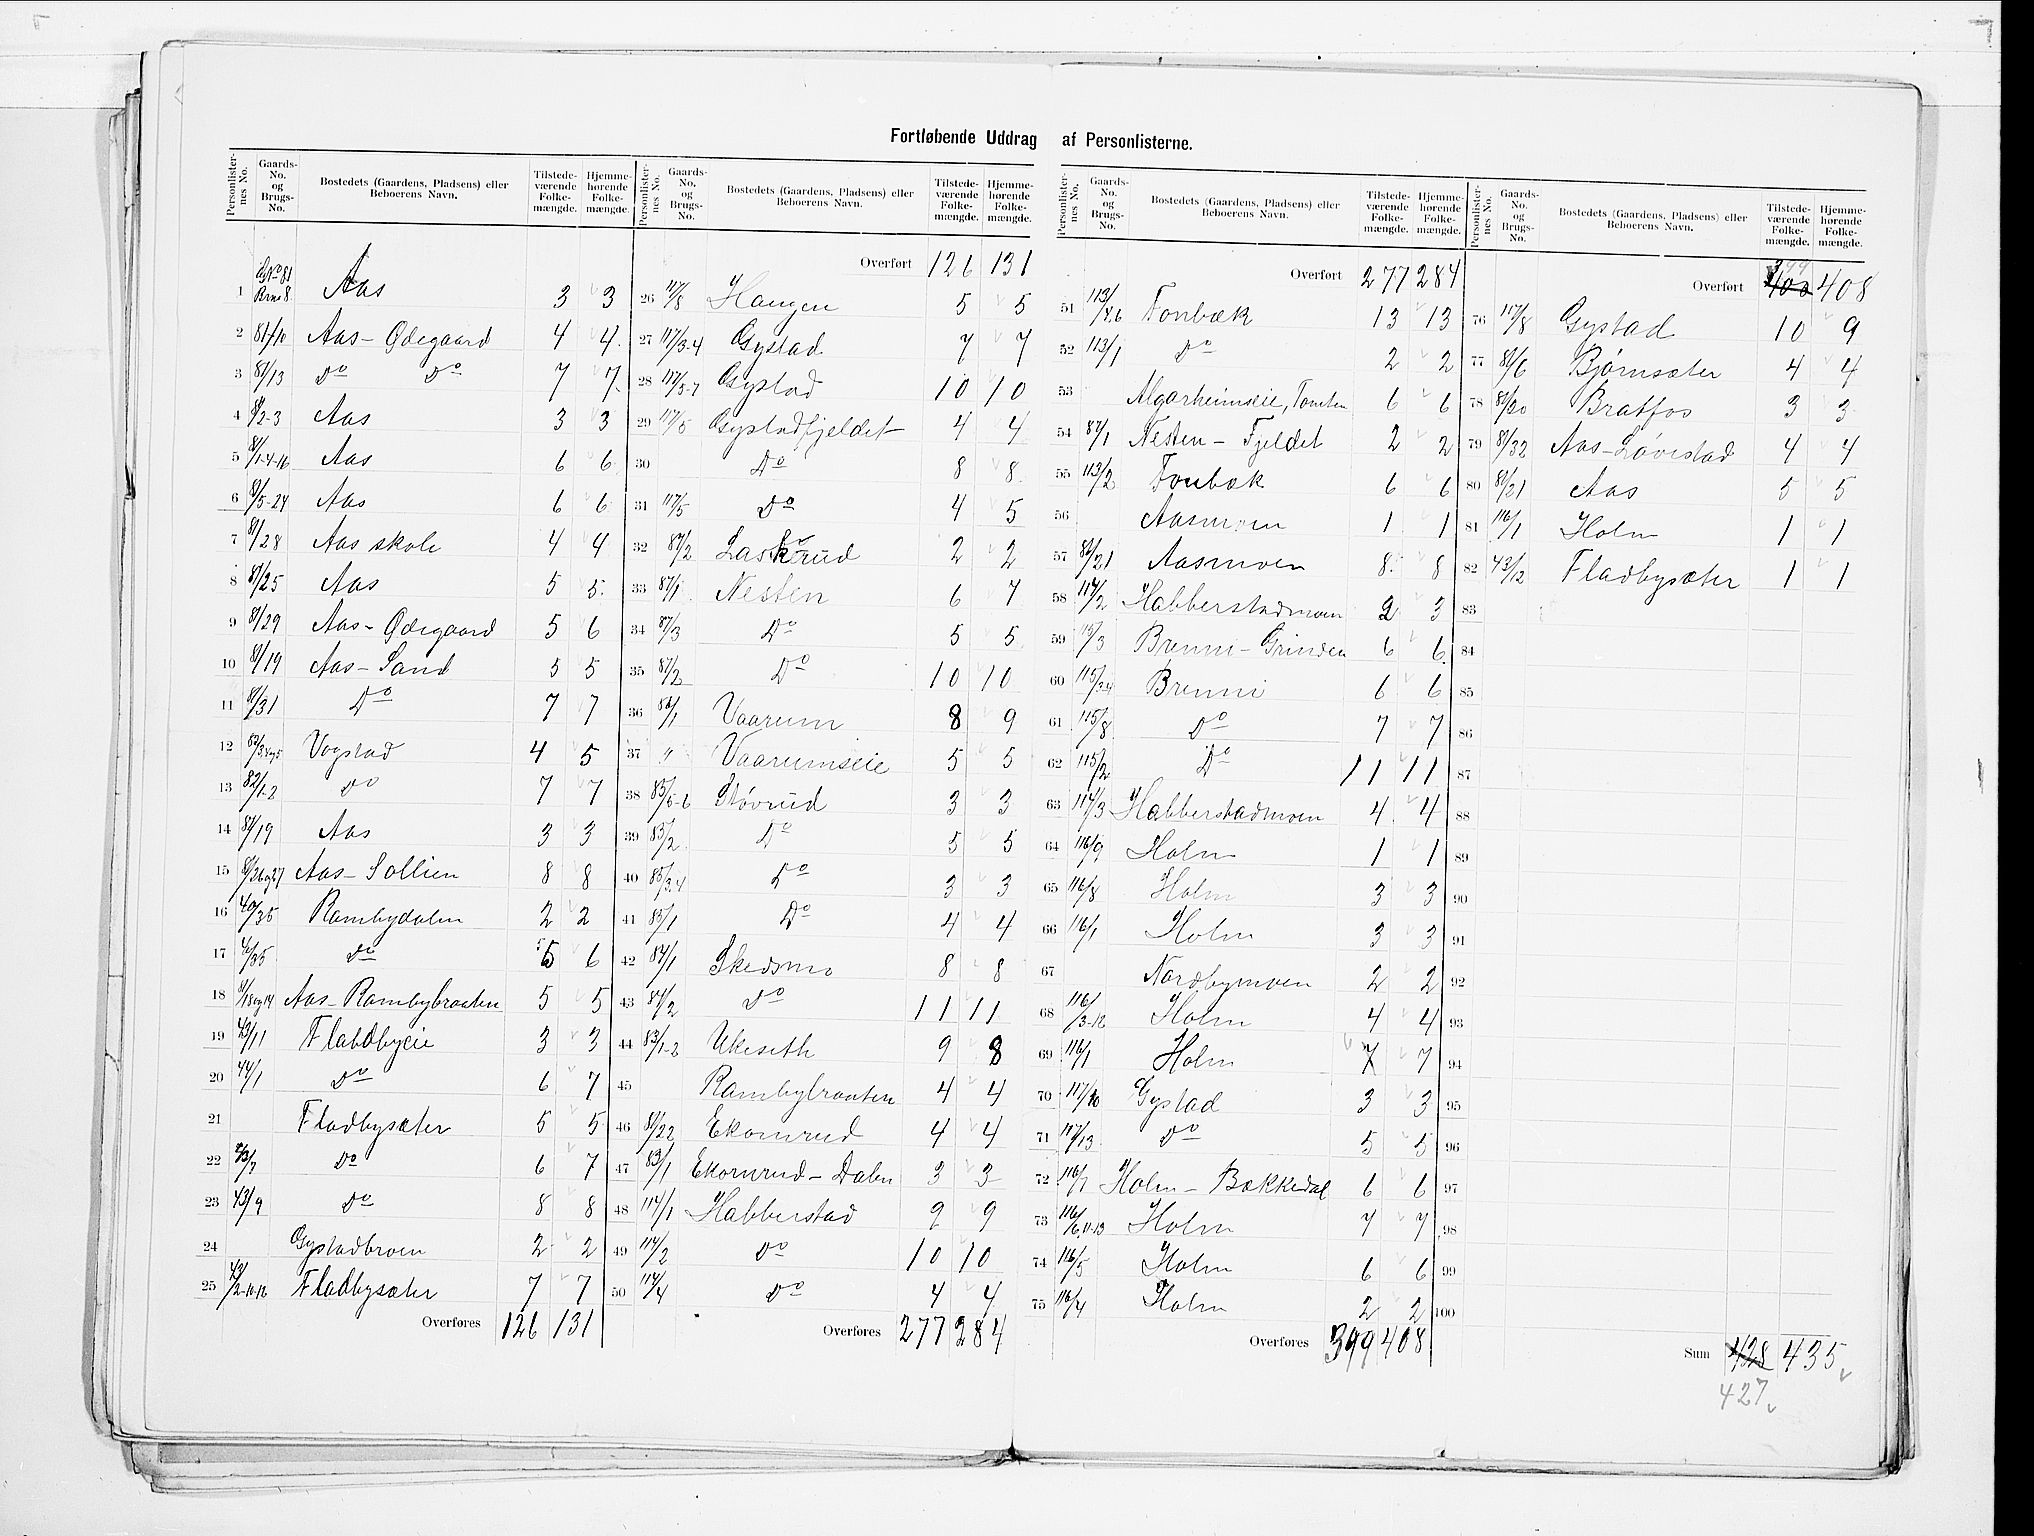 Fortløbende Uddrag af Personlisterne.
Personlister-nes No. | Gaards-No. og Brugs-No. | Bostedets (Gaardens, Pladsens) eller Beboerens Navn. | Tilstede-værende Folke-mængde. | Hjemme-hørende Folke-mængde.
1 Gno 81 Brno 8 Aas 3 3
2 81/10 Aas-Ødegaard 4 4
3 81/13 Do Do 7 7
4 81/2-3 Aas 3 3
5 81/1-4-16 Aas 6 6
6 81/5-24 Aas 6 6
7 81/28 Aas skole 4 4
8 81/25 Aas 5 5
9 81/29 Aas-Ødegaard 5 6
10 81/19 Aas-Sand 5 5
11 81/31 Do 7 7
12 82/3,4og5 Vogstad 4 5
13 82/1-2 Do 7 7
14 81/19 Aas 3 3
15 81/26og27 Aas-Sollien 8 8
16 40/35 Rambydalen 2 2
17 40/35 Do 5 6
18 81/18og14 Aas-Rambybraaten 5 5
19 43/11 Fladbyeie 3 3
20 44/1 Do 6 7
21 Fladbysæter 5 5
22 43/7 Do 6 7
23 43/9 Do 8 8
24 Gystadbroen 2 2
25 43/2-10-12 Fladbysæter 7 7
Overføres 126 131
Personlister-nes No. | Gaards-No. og Brugs-No. | Bostedets (Gaardens, Pladsens) eller Beboerens Navn. | Tilstede-værende Folke-mængde. | Hjemme-hørende Folke-mængde.
Overført 126 131
26 117/8 Haugen 5 5
27 117/3-4 Gystad 7 7
28 117/5-7 Gystad 10 10
29 117/5 Gystadfjeldet 4 4
30 Do 8 8
31 117/5 Do 4 5
32 87/2 Laskerud 2 2
33 87/1 Nesten 6 7
34 87/3 Do 5 5
35 87/2 Do 10 10
36 86/1 Vaarum 8 9
37 " Vaarumseie 5 5
38 85/5-6 Støvrud 3 3
39 85/2 Do 5 5
40 85/3.4 Do 3 3
41 85/1 Do 4 4
42 84/1 Skedsmo 8 8
43 84/2 Do 11 11
44 83/1-2 Ukeseth 9 8
45 Rambybraaten 4 4
46 81/22 Ekornrud 4 4
47 83/1 Ekornrud-Dalen 3 3
48 114/1 Habberstad 9 9
49 114/2 Do 10 10
50 114/4 Do 4 4
Overføres 277 284
Personlister-nes No. | Gaards-No. og Brugs-No. | Bostedets (Gaardens, Pladsens) eller Beboerens Navn. | Tilstede-værende Folke-mængde. | Hjemme-hørende Folke-mængde.
Overført 277 284
51 113/4.6 Fonbæk 13 13
52 113/1 Do 2 2
53 Algarheimseie, Tomten 6 6
54 87/1 Nesten-Fjeldet 2 2
55 113/2 Fonbæk 6 6
56 Aasmoen 1 1
57 81/21 Aasmoen 8 8
58 114/2 Habberstadmoen 2 3
59 115/3 Brenni-Grinden 6 6
60 115/3.4 Brenni 6 6
61 115/8 Do 7 7
62 115/2 Do 11 11
63 114/3 Habberstadmoen 4 4
64 116/9 Holm 1 1
65 116/8 Holm 3 3
66 116/1 Holm 3 3
67 Nordbymoen 2 2
68 116/3-12 Holm 4 4
69 116/1 Holm 7 7
70 117/10 Gystad 3 3
71 117/13 Do 5 5
72 116/7 Holm-Bækkedal 6 6
73 116/6.11-13 Holm 7 7
74 116/5 Holm 6 6
75 116/4 Holm 2 2
Overføres 399 408
Personlister-nes No. | Gaards-No. og Brugs-No. | Bostedets (Gaardens, Pladsens) eller Beboerens Navn. | Tilstede-værende Folke-mængde. | Hjemme-hørende Folke-mængde.
399
Overført 400 408
76 117/8 Gystad 10 9
77 81/6 Bjørnsæter 4 4
78 81/20 Bratfos 3 3
79 81/32 Aas-Løvestad 4 4
80 81/21 Aas 5 5
81 116/1 Holm 1 1
82 43/12 Fladbysæter 1 1
83
84
85
86
87
88
89
90
91
92
93
94
95
96
97
98
99
100
Sum 428 435
427